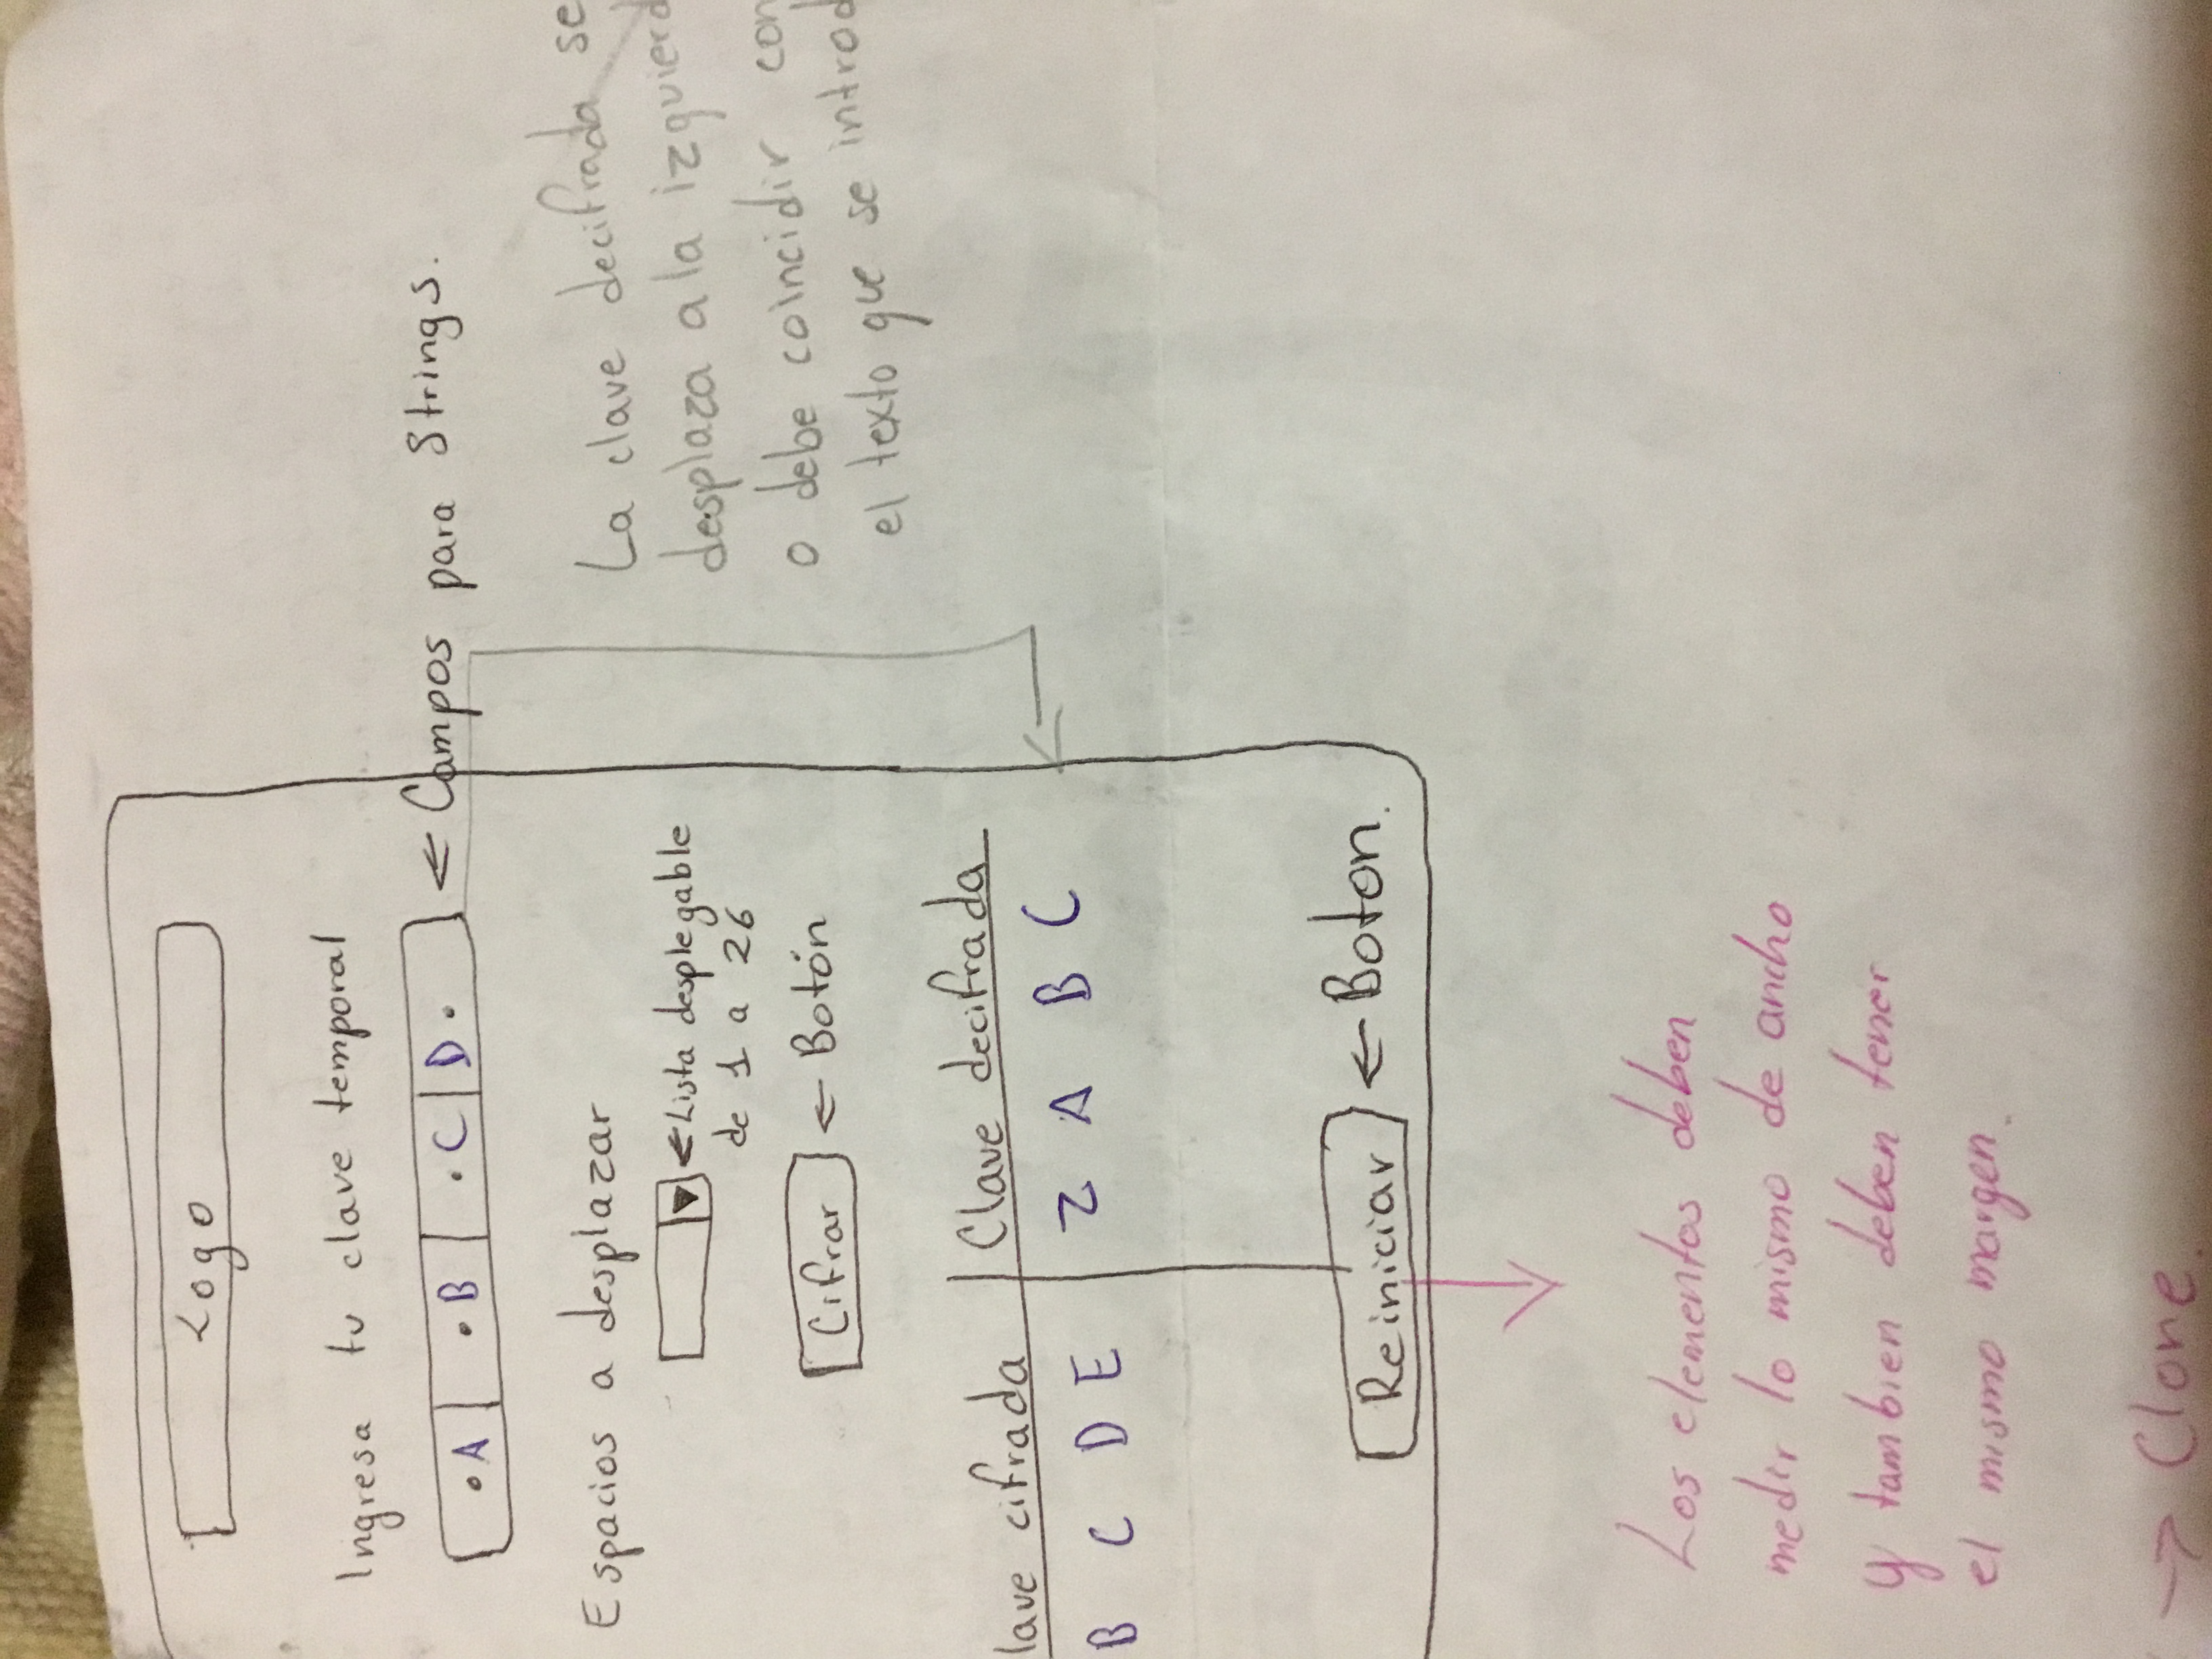 Logo
Ingresa tu clave temporal
•A •B •C D• ← Campos para Strings.
Espacios a desplazar
← Lista desplegable
de 1 a 26
Cifrar ← Botón
La clave decifrada se
desplaza a la izquierd
o debe coincidir con
el texto que se introd
lave cifrada Clave decifrada
B C D E Z A B C
Reiniciar ← Boton.
Los elementos deben
medir lo mismo de ancho
y tambien deben tener
el mismo margen.
→ Clone.